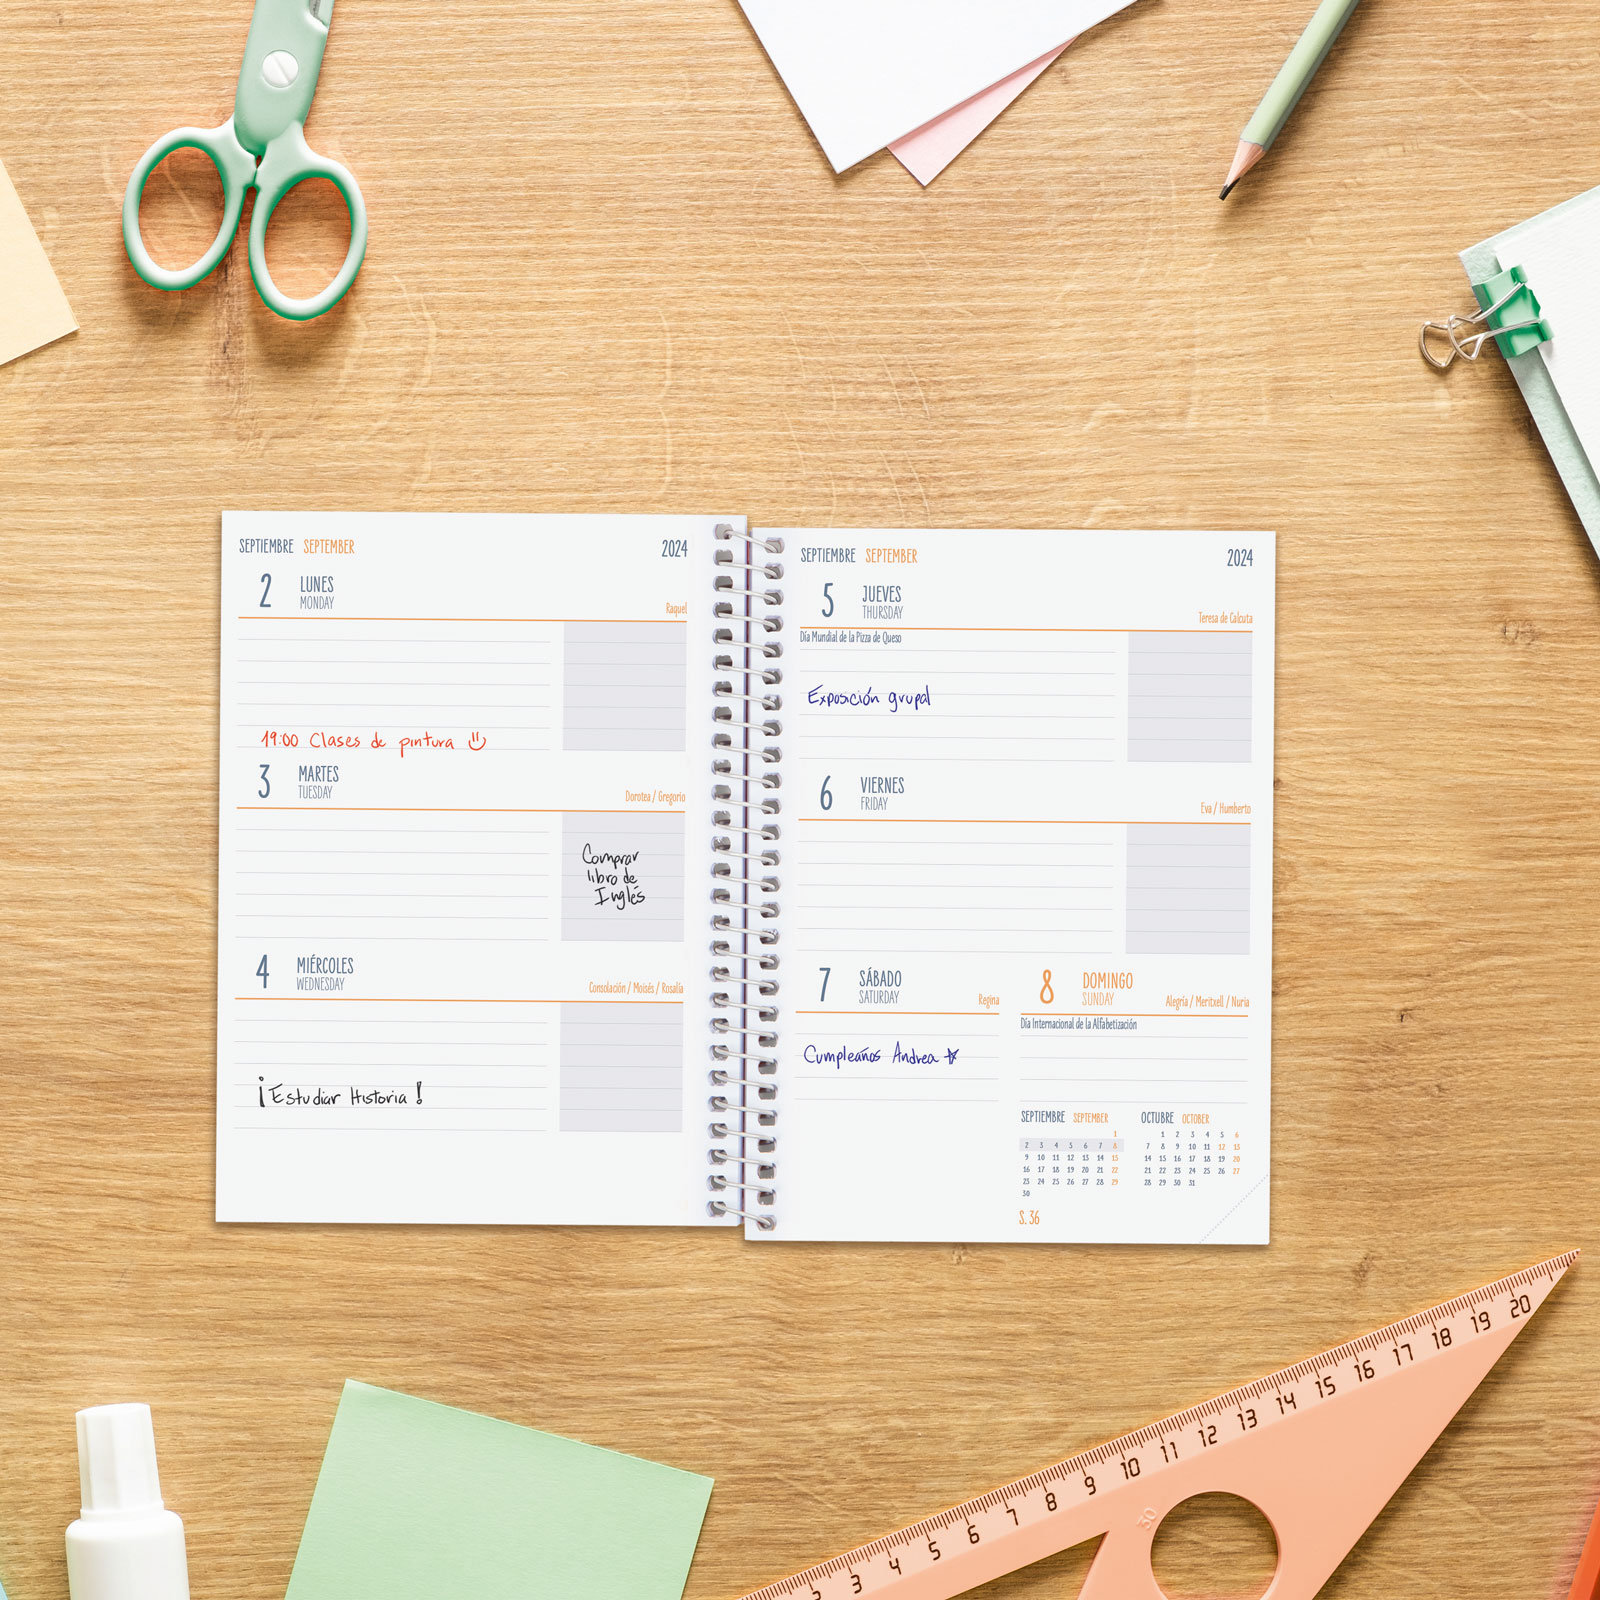 SEPTIEMBRE SEPTEMBER 2024
2 LUNES
MONDAY
Raquel
19:00 Clases de pintura
3 MARTES
TUESDAY
Dorotea / Gregorio
Comprar
libro de
Inglés
4 MIÉRCOLES
WEDNESDAY
Consolación / Moisés / Rosalía
¡Estudiar Historia!
SEPTIEMBRE SEPTEMBER 2024
5 JUEVES
THURSDAY
Teresa de Calcuta
Día Mundial de la Pizza de Queso
Exposición grupal
6 VIERNES
FRIDAY
Eva / Humberto
7 SÁBADO
SATURDAY
Regina
Cumpleaños Andrea
8 DOMINGO
SUNDAY
Alegría / Meritxell / Nuria
Día Internacional de la Alfabetización
SEPTIEMBRE SEPTEMBER
1
2 3 4 5 6 7 8
9 10 11 12 13 14 15
16 17 18 19 20 21 22
23 24 25 26 27 28 29
30
OCTUBRE OCTOBER
1 2 3 4 5 6
7 8 9 10 11 12 13
14 15 16 17 18 19 20
21 22 23 24 25 26 27
28 29 30 31
S. 36
2 3 4 5 6 7 8 9 10 11 12 13 14 15 16 17 18 19 20
30